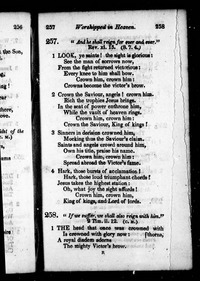 256
257 Worshipped in Heaven. 258
the Son,
257. "And he shall reign for ever and ever."
Rev. xi. 15. (8. 7. 4.)
1 LOOK, ye saints! the sight is glorious:
See the man of sorrows now,
From the fight returned victorious:
Every knee to him shall bow.
Crown him, crown him!
Crowns become the victor's brow.
2 Crown the Saviour, angels! crown him:
Rich the trophies Jesus brings.
In the seat of power enthrone him,
While the vault of heaven rings.
Crown him, crown him!
Crown the Saviour, King of kings!
3 Sinners in derision crowned him,
Mocking thus the Saviour's claim.
Saints and angels crowd around him,
Own his title, praise his name.
Crown him, crown him:
Spread abroad the Victor's fame.
4 Hark, those bursts of acclamation!
Hark, those loud triumphant chords!
Jesus takes the highest station:
Oh, what joy the sight affords!
Crown him, crown him,
King of kings, and Lord of lords.
258. "If we suffer, we shall also reign with him."
2 Tim. ii. 12. (C. M.)
1 THE head that once was crowned with
Is crowned with glory now: [thorns,
A royal diadem adorns
The mighty Victor's brow.